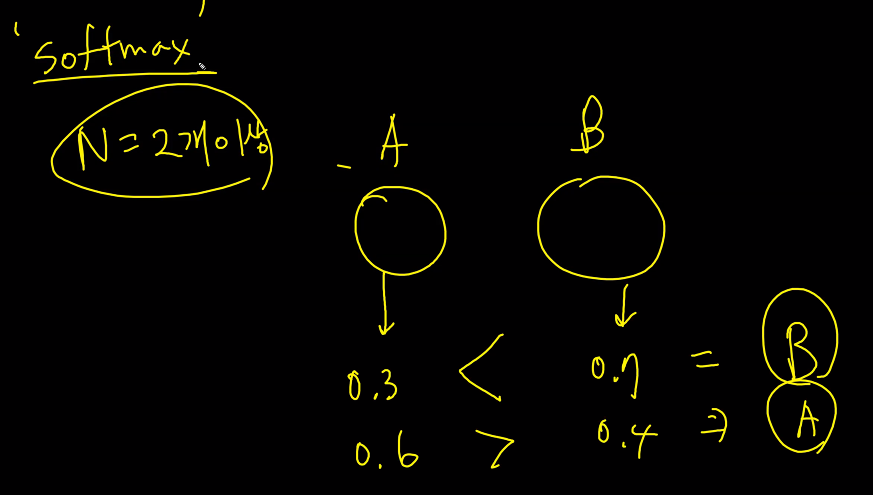 'softmax'
N = 2개이상
A B
0.3 < 0.7 = B
0.6 > 0.4 ⇒ A